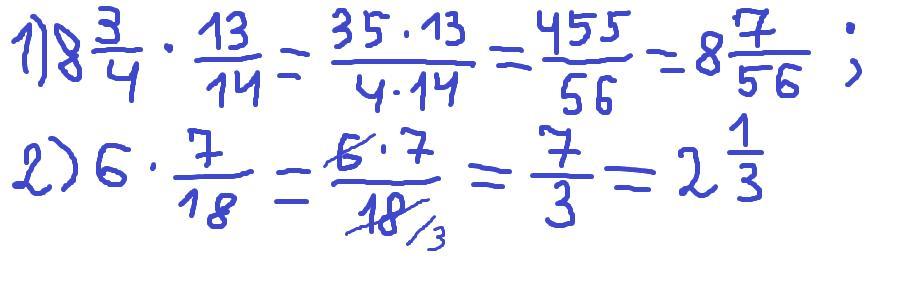 1) 8 3/4 · 13/14 = 35 · 13/4 · 14 = 455/56 = 8 7/56 ;
2) 6 · 7/18 = 6 · 7/18/3 = 7/3 = 2 1/3